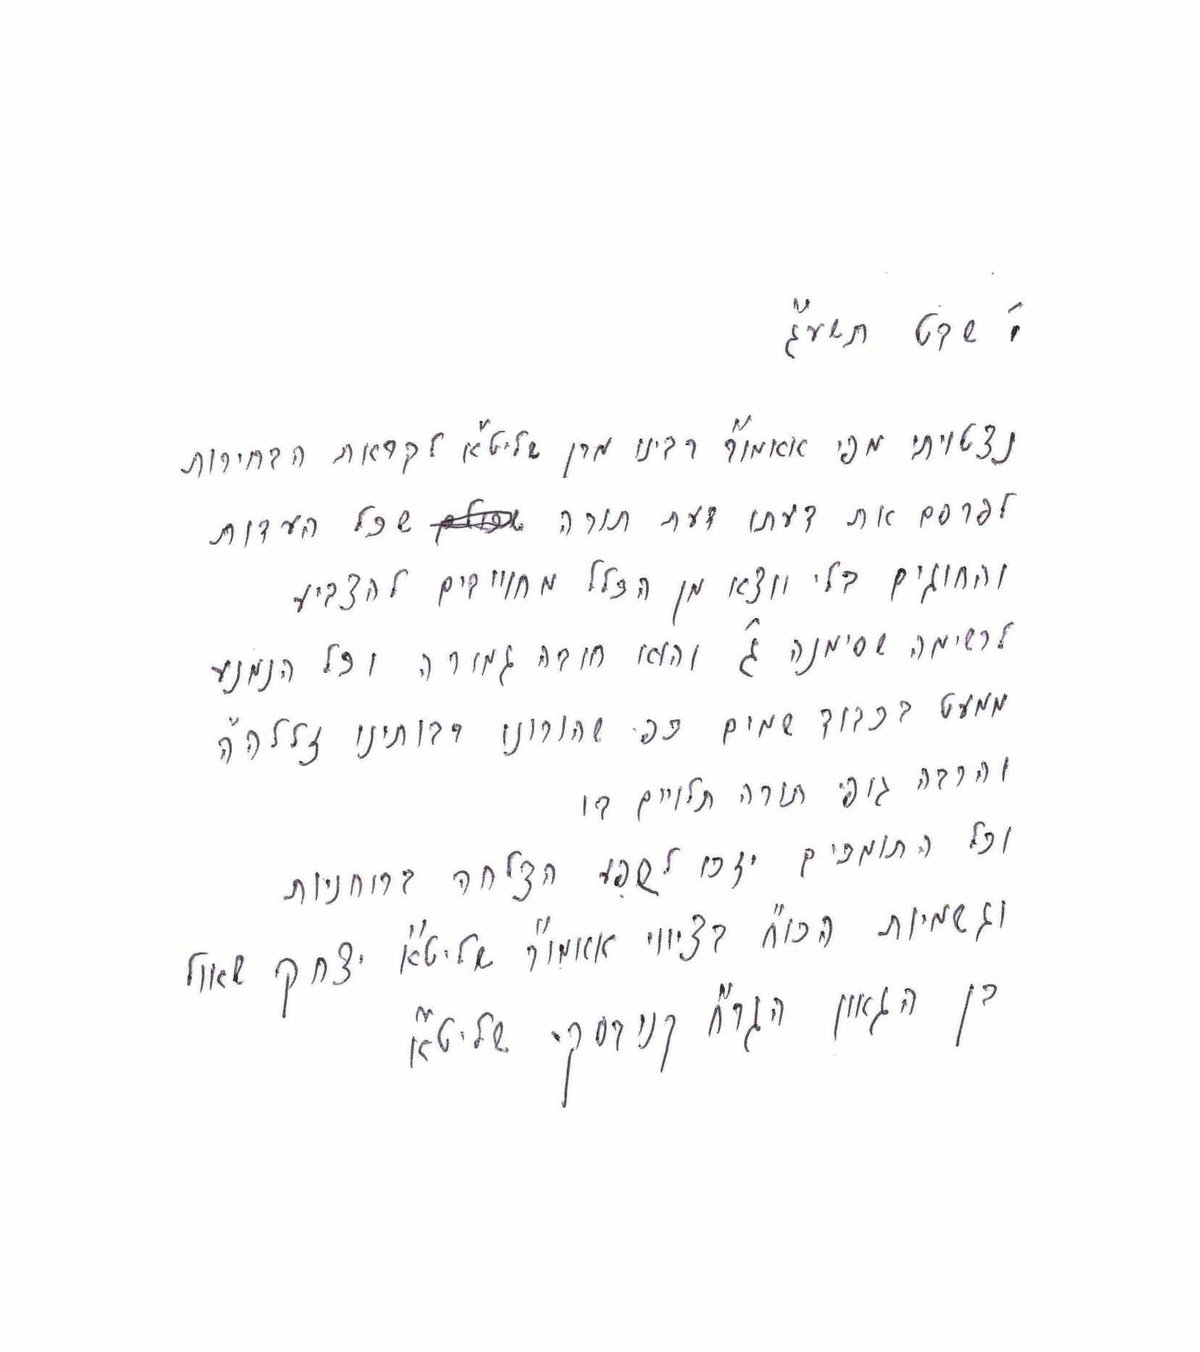 י' שבט תשע"ג
נצטויתי מפי אאמו"ר רבינו מרן שליט"א לקראת הבחירות
לפרסם את דעתו דעת תורה שכולם שכל העדות
והחוגים בלי יוצא מן הכלל מחוייבים להצביע
לרשימה שסימנה ג' והוא חובה גמורה וכל הנמנע
ממעט בכבוד שמים כפי שהורונו רבותינו זללה"ה
והרבה גופי תורה תלויים בו
וכל התומכים יזכו לשפע הצלחה ברוחניות
וגשמיות הכו"ח בציווי אאמו"ר שליט"א יצחק שאול
בן הגאון הגר"ח קניבסקי שליט"א